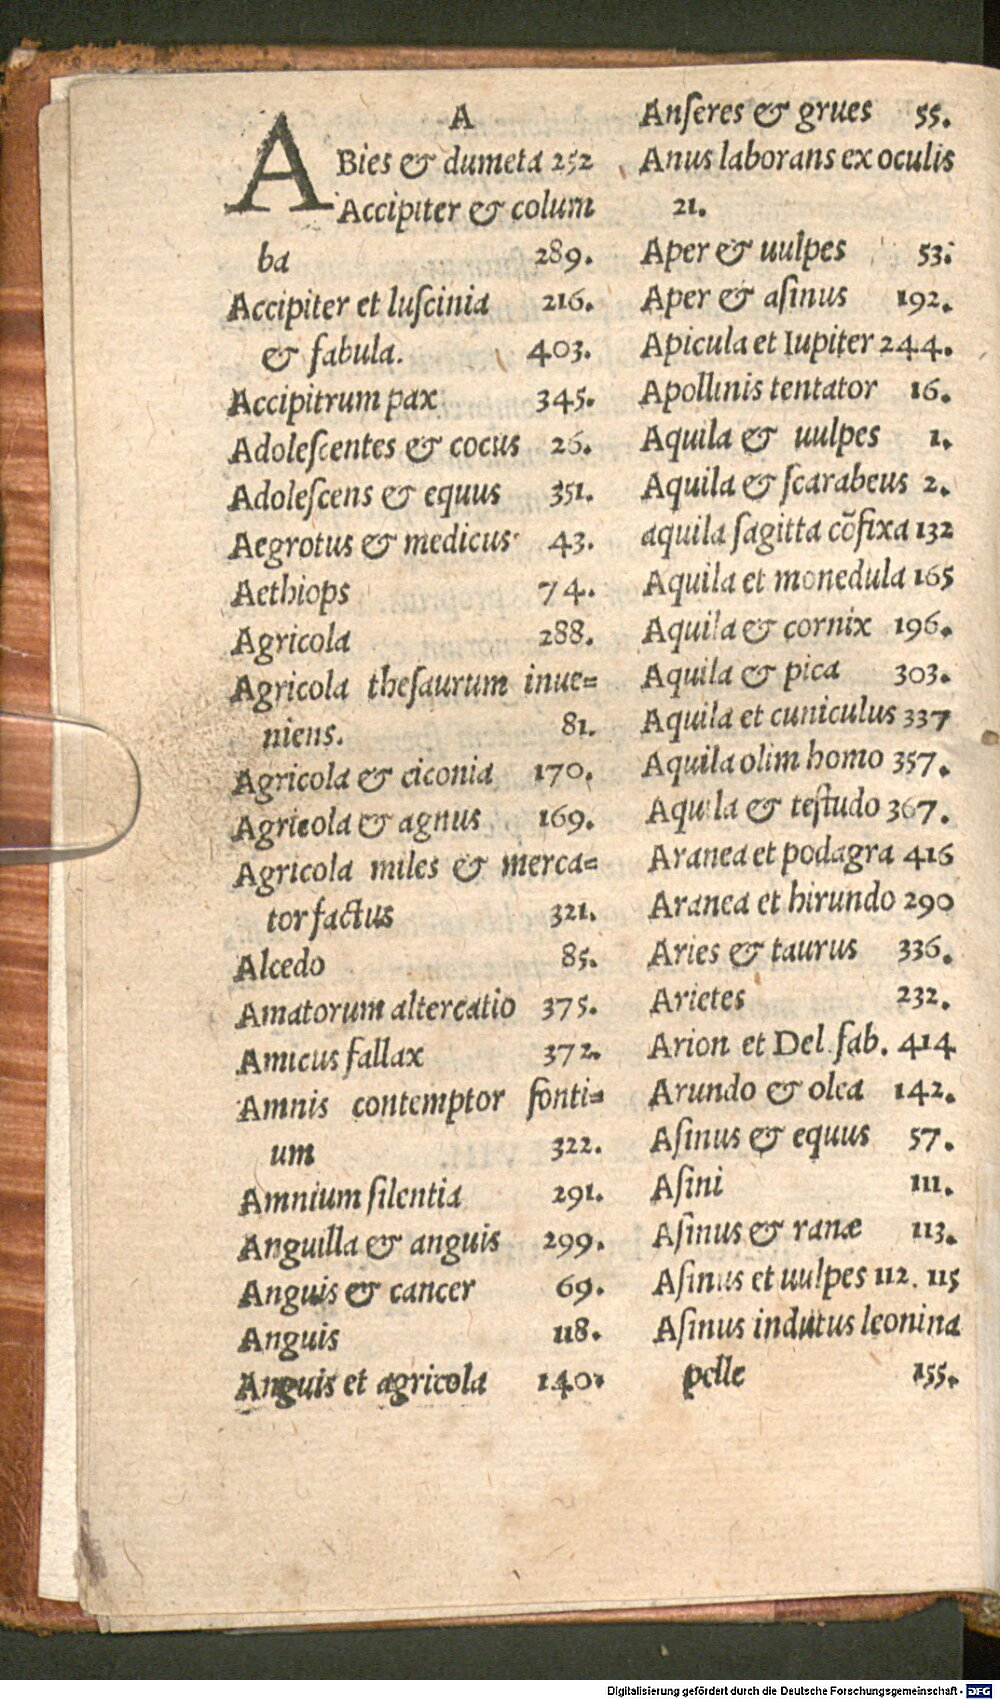 A
ABies & dumeta 252
Accipiter & colum
ba 289.
Accipiter et luſcinia 216.
& fabula. 403.
Accipitrum pax 345.
Adoleſcentes & cocus 26.
Adoleſcens & equus 351.
Aegrotus & medicus 43.
Aethiops 74.
Agricola 288.
Agricola theſaurum inue=
niens. 81.
Agricola & ciconia 170.
Agricola & agnus 169.
Agricola miles & merca=
tor factus 321.
Alcedo 85.
Amatorum altercatio 375.
Amicus fallax 372.
Amnis contemptor fonti=
um 322.
Amnium ſilentia 291.
Anguilla & anguis 299.
Anguis & cancer 69.
Anguis 118.
Anguis et agricola 140.
Anſeres & grues 55.
Anus laborans ex oculis
21.
Aper & uulpes 53.
Aper & aſinus 192.
Apicula et Iupiter 244.
Apollinis tentator 16.
Aquila & uulpes 1.
Aquila & ſcarabeus 2.
aquila ſagitta cõfixa 132
Aquila et monedula 165
Aquila & cornix 196.
Aquila & pica 303.
Aquila et cuniculus 337
Aquila olim homo 357.
Aquila & teſtudo 367.
Aranea et podagra 416
Aranea et hirundo 290
Aries & taurus 336.
Arietes 232.
Arion et Del. fab. 414
Arundo & olea 142.
Aſinus & equus 57.
Aſini 111.
Aſinus & ranæ 113.
Aſinus et uulpes 112. 115
Aſinus indutus leonina
pelle 155.
Digitalisierung gefördert durch die Deutsche Forschungsgemeinschaft - DFG